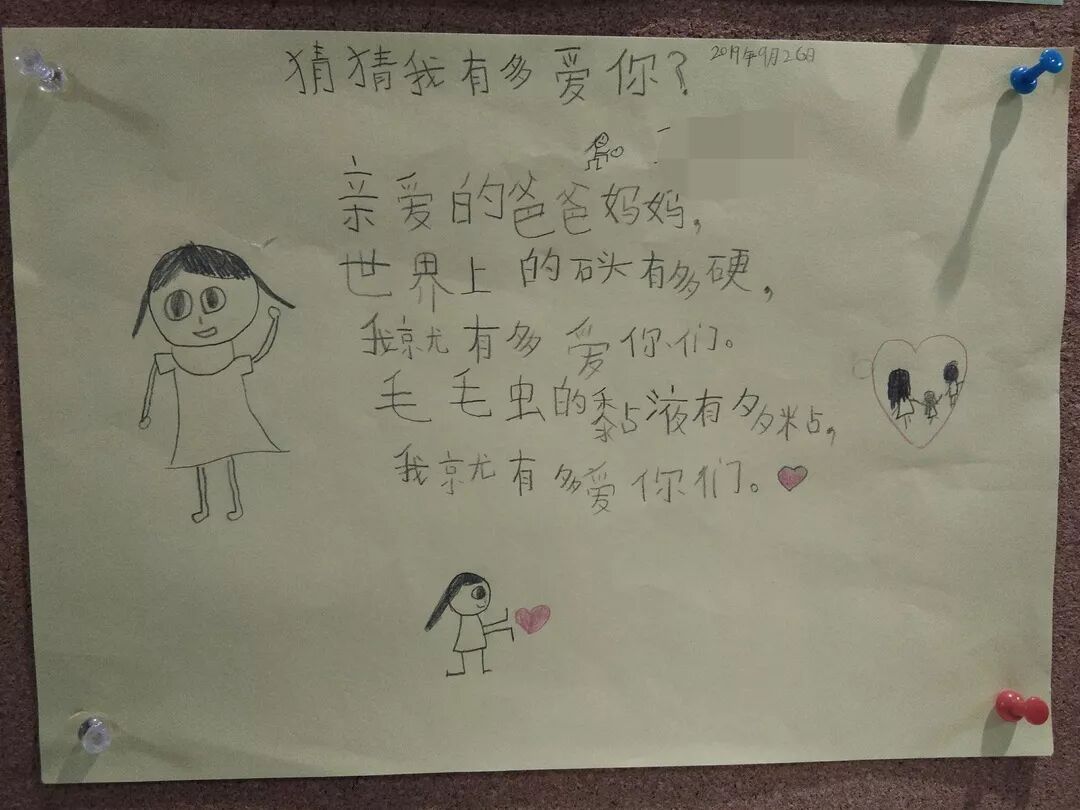 猜猜我有多爱你?
2019年9月26日
亲爱的爸爸妈妈,
世界上的石头有多硬,
我就有多爱你们。
毛毛虫的黏液有多粘,
我就有多爱你们。